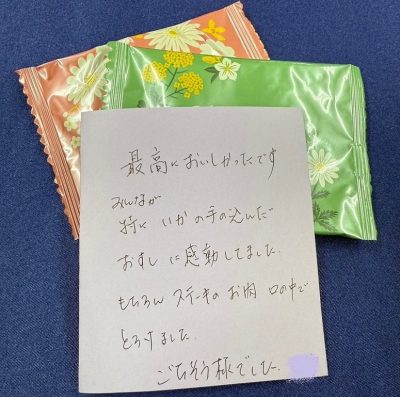 最高においしかったです
みんなが
特に いかの手の込んだ
おすしに感動してました.
もちろん ステーキのお肉 口の中で
とろけました.
ごちそう様でした.